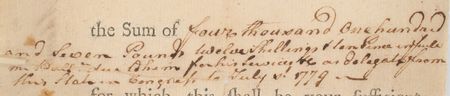 the Sum of four thousand One hundred
and Seven Pounds twelve Shillings & ten
due him for his Services as delegate from
this State in Congress to July 1st 1779
for which this shall be your sufficient